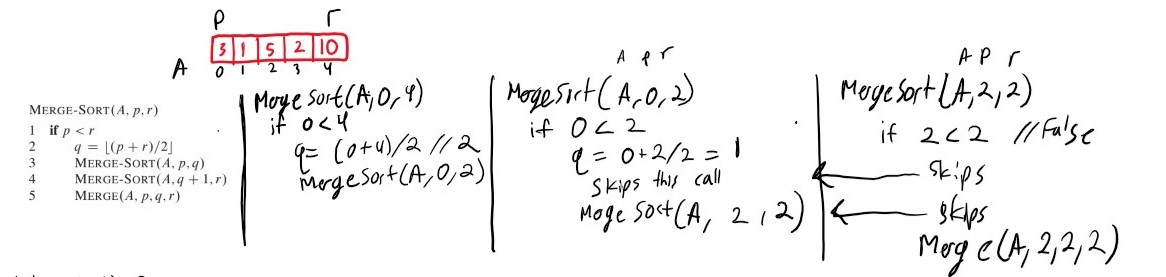 P r
3 1 5 2 10
A 0 1 2 3 4
MERGE-SORT(A, p, r)
1 if p < r
2 q = ⌊(p + r)/2⌋
3 MERGE-SORT(A, p, q)
4 MERGE-SORT(A, q + 1, r)
5 MERGE(A, p, q, r)
Merge Sort(A,0,4)
if 0<4
q= (0+4)/2 // 2
MergeSort(A,0,2)
A p r
MergeSort(A,0,2)
if 0<2
q = 0+2/2 = 1
Skips this call
Merge Sort(A, 2,2)
A P r
MergeSort(A,2,2)
if 2<2 //False
skips
skips
Merge(A,2,2,2)